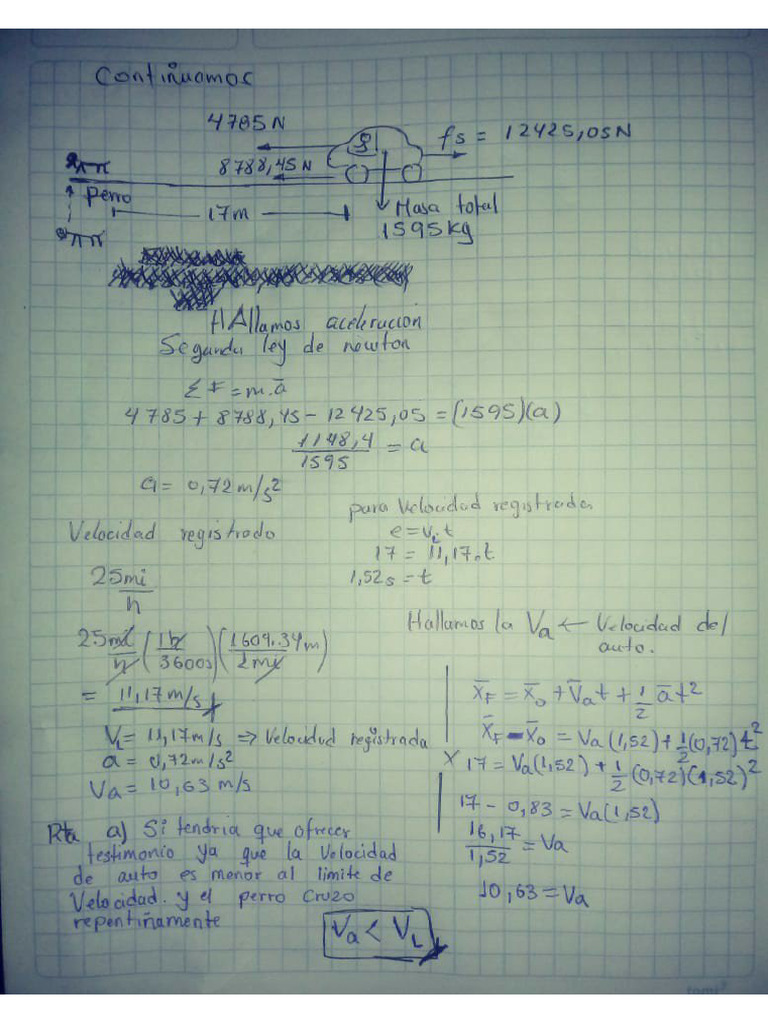 Continuamos
4785N
fs = 12425,05N
8788,45N
Perro
17m
Masa total
1595kg
HAllamos aceleracion
Segunda ley de newton
Σ F = m.ā
4785 + 8788,45 - 12425,05 = (1595)(a)
1148,4 / 1595 = a
a = 0,72 m/s²
Velocidad registrado
25mi / h
25 mi/h (1h / 3600s) (1609.34m / 1mi)
= 11,17 m/s
V_L = 11,17 m/s => Velocidad registrada
a = 0,72 m/s²
Va = 10,63 m/s
para Velocidad registrada
e = v_L t
17 = 11,17.t
1,52s = t
Hallamos la Va ← Velocidad del
auto.
X̄_F = X̄_0 + V̄a t + 1/2 ā t²
X̄_F - X̄_0 = Va (1,52) + 1/2 (0,72) t²
17 = Va(1,52) + 1/2 (0,72)(1,52)²
17 - 0,83 = Va(1,52)
16,17 / 1,52 = Va
10,63 = Va
Rta a) Si tendria que ofrecer
testimonio ya que la Velocidad
de auto es menor al limite de
Velocidad. y el perro Cruzo
repentiñamente
Va < V_L